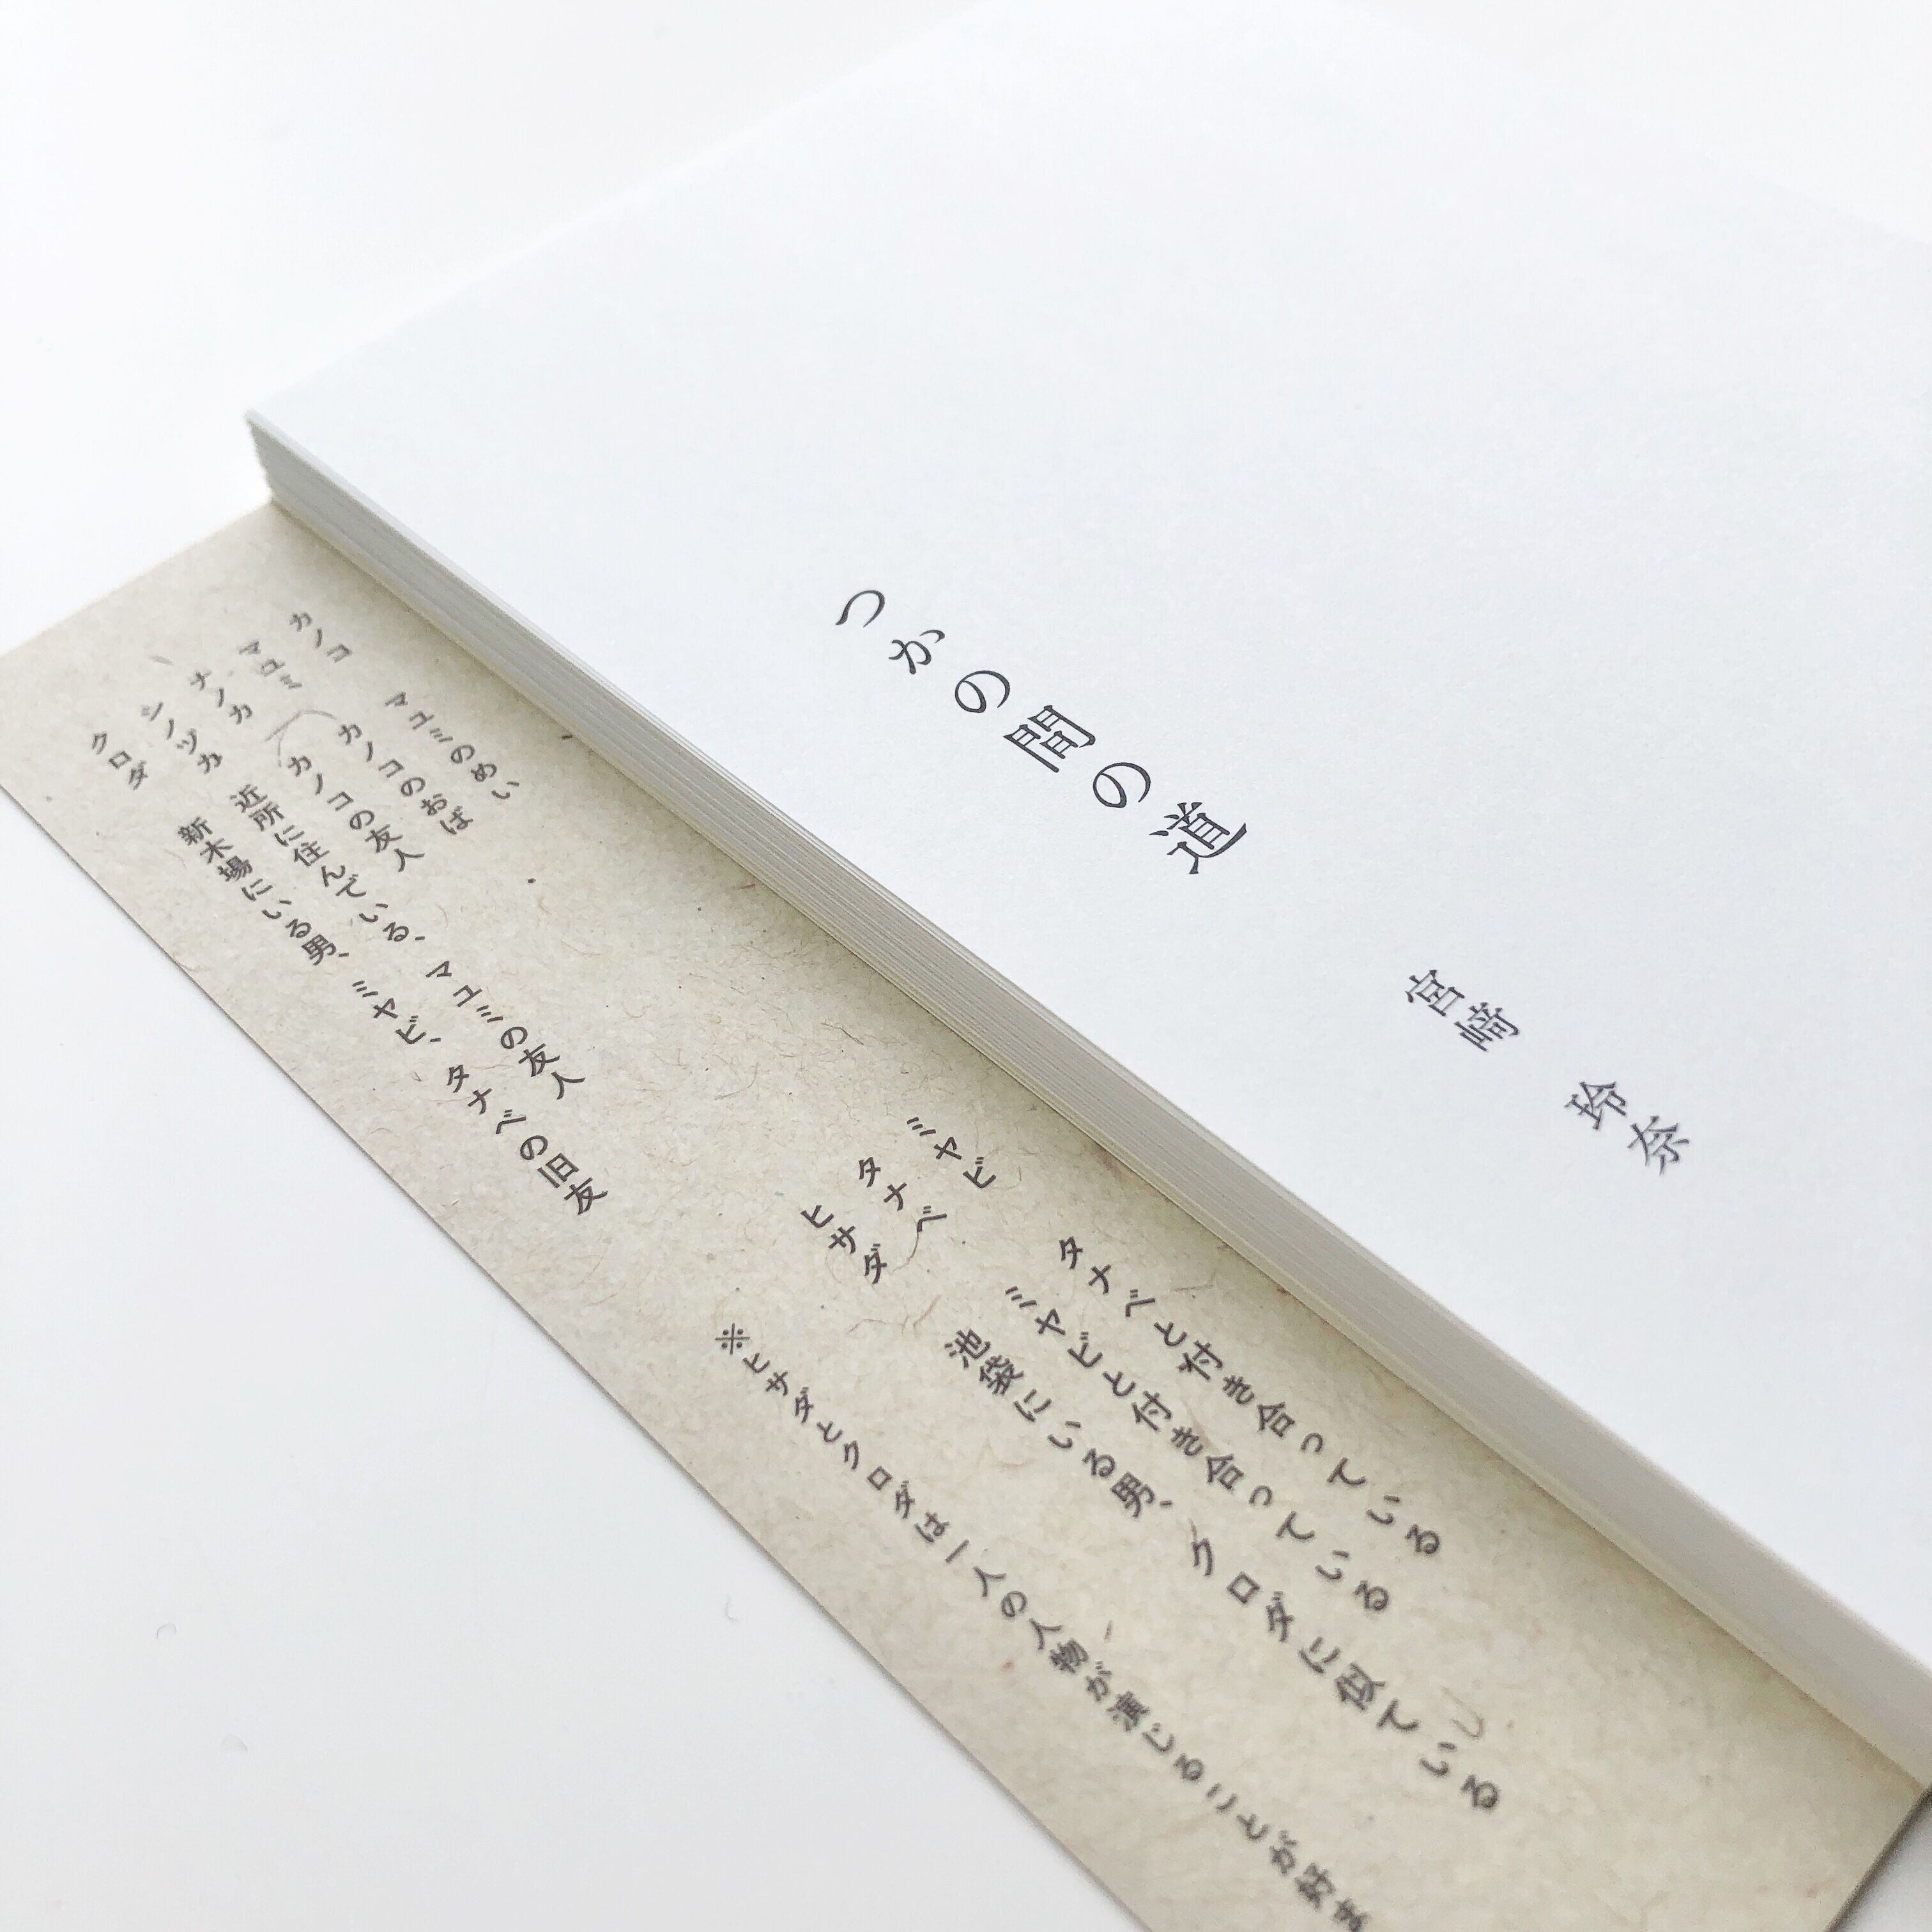 つかの間の道
宮崎 玲奈
カノコ マユミのめい
マユミ カノコのおば
ナノカ カノコの友人
シノヅカ 近所に住んでいる、マユミの友人
クロダ 新木場にいる男、ミヤビ、タナベの旧友
ミヤビ タナベと付き合っている
タナベ ミヤビと付き合っている
ヒサダ 池袋にいる男、クロダに似ている
※ヒサダとクロダは一人の人物が演じることが好ま